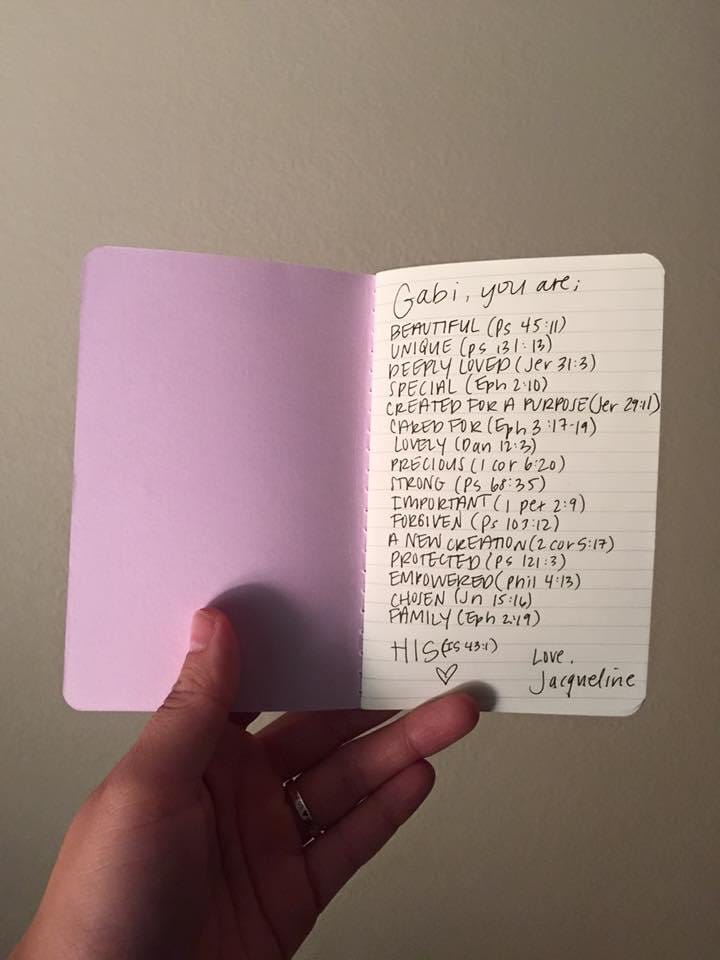 Gabi, you are;
BEAUTIFUL (Ps 45:11)
UNIQUE (ps 131:13)
DEEPLY LOVED (Jer 31:3)
SPECIAL (Eph 2:10)
CREATED FOR A PURPOSE (Jer 29:11)
CARED FOR (Eph 3:17-19)
LOVELY (Dan 12:3)
PRECIOUS (1 cor 6:20)
STRONG (Ps 68:35)
IMPORTANT (1 pet 2:9)
FORGIVEN (Ps 103:12)
A NEW CREATION (2 cor 5:17)
PROTECTED (Ps 121:3)
EMPOWERED (phil 4:13)
CHOSEN (Jn 15:16)
FAMILY (Eph 2:19)
HIS (IS 43:1)
Love,
Jacqueline